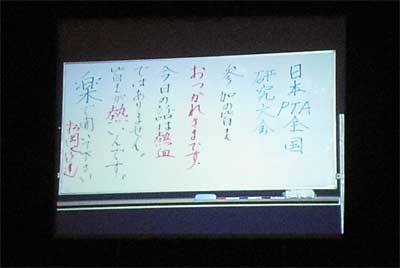 日本PTA全国
研究大会
参加の皆さん
おつかれさまです。
今日の話は熱血
ではありません。
皆さんが熱いんです。
楽に聞いて下さい
松岡